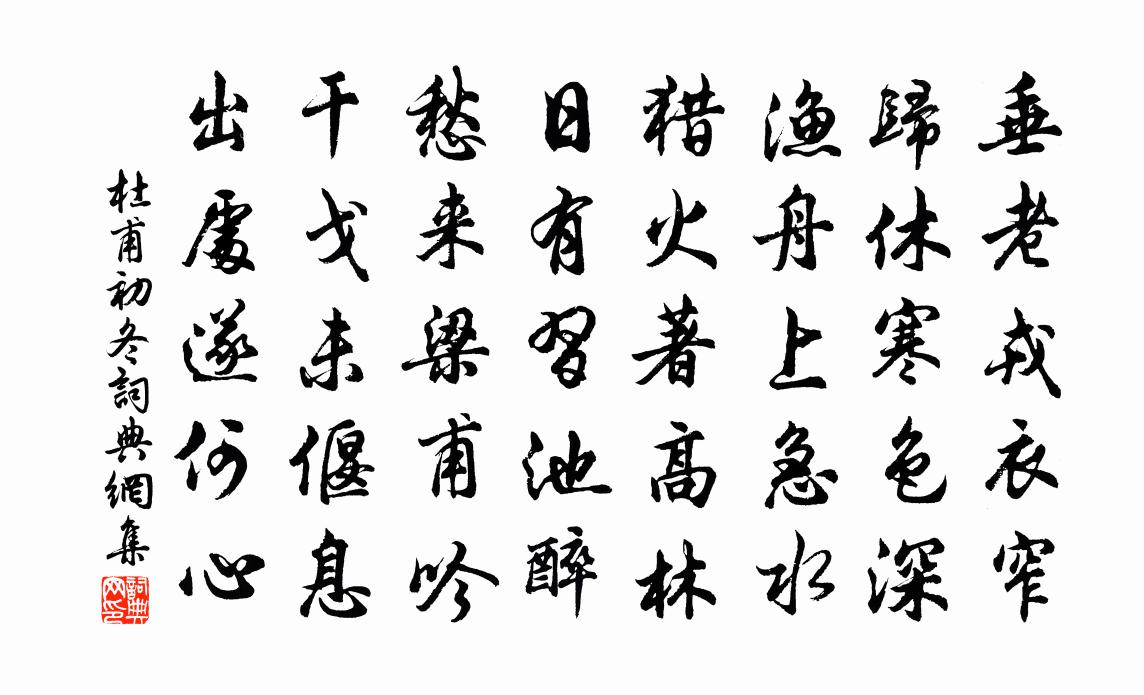 垂老戎衣窄
歸休寒色深
漁舟上急水
猎火著高林
日有習池醉
愁来梁甫吟
干戈未偃息
出處遂何心
杜甫初冬詞典網集
詞典网印